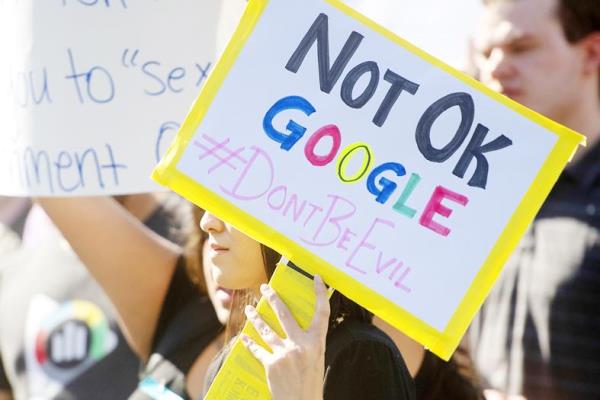 you to "sex
NOT OK
GOOGLE
#DONTBEEVIL